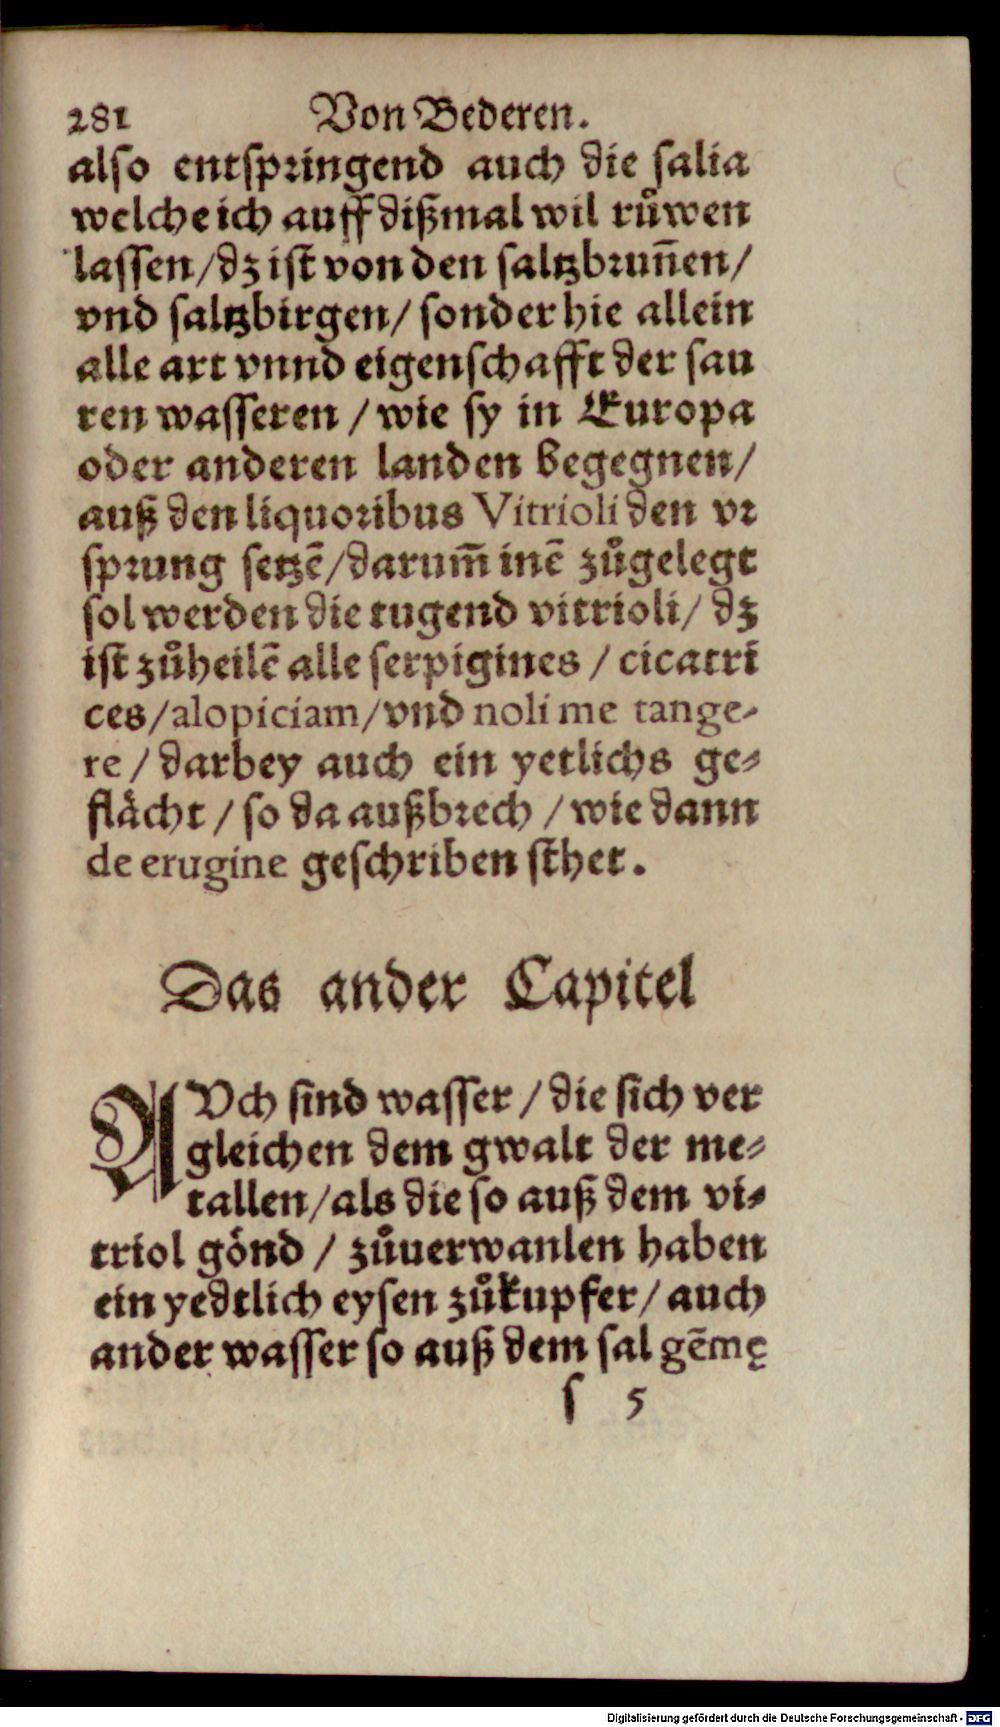 281 Von Bederen.
also entspringend auch die salia
welche ich auff dißmal wil růwen
lassen/dz ist von den saltzbrun̄en/
vnd saltzbirgen/ sonder hie allein
alle art vnnd eigenschafft der sau
ren wasseren / wie sy in Europa
oder anderen landen begegnen/
auß den liquoribus Vitrioli den vr
sprung setzē/darum̄ inē zůgelegt
sol werden die tugend vitrioli/ dz
ist zůheilē alle serpigines / cicatri
ces/alopiciam/vnd noli me tange⸗
re / darbey auch ein yetlichs ge⸗
flächt / so da außbrech / wie dann
de erugine geschriben sthet.
Das ander Capitel
AVch sind wasser / die sich ver
gleichen dem gwalt der me⸗
tallen/als die so auß dem vi⸗
triol gönd / zůuerwanlen haben
ein yedtlich eysen zů kupfer/ auch
ander wasser so auß dem sal gēmę
s 5
Digitalisierung gefördert durch die Deutsche Forschungsgemeinschaft - DFG